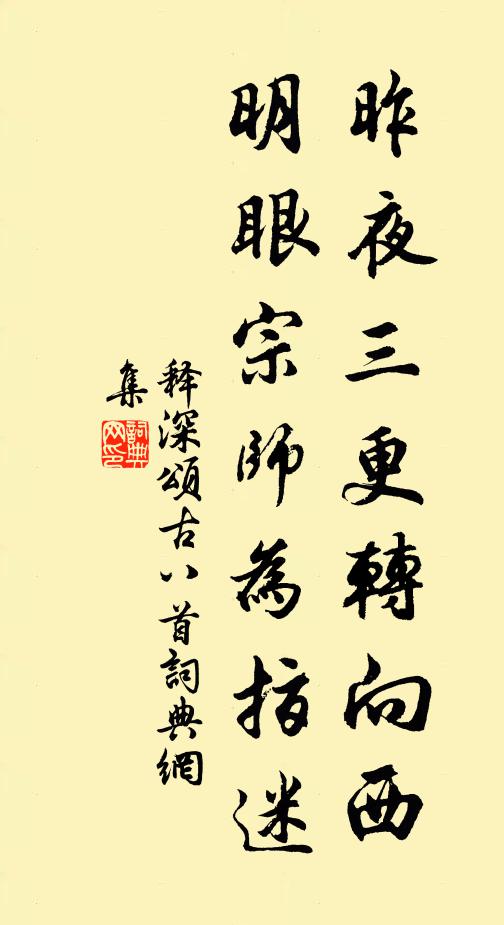 昨夜三更轉向西
明眼宗師為指迷
释深頌古八首詞典網
集
詞典
网印